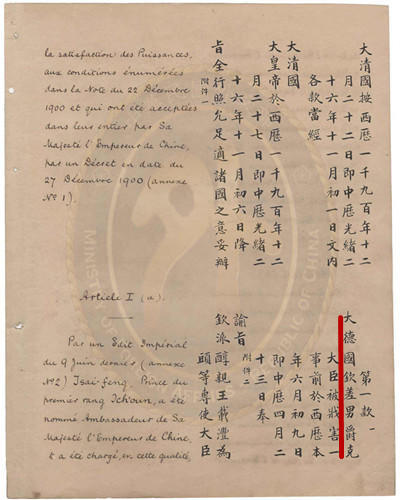 la satisfaction des Puissances,
aux conditions énumérées
dans la Note du 22 Décembre
1900 et qui ont été acceptées
dans leur entier par Sa
Majesté l'Empereur de Chine,
par un Décret en date du
27 Décembre 1900 (annexe
No 1).
Article I (a).
Par un Edit Impérial
du 9 Juin dernier (annexe
No 2) Tsai-feng, Prince du
premier rang Tch'oun, a été
nommé Ambassadeur de Sa
Majesté l'Empereur de Chine,
et a été chargé, en cette qualité,
大清國按西歷一千九百年十二
月二十二日即中歷光緒二
十六年十一月初一日文內
各款當經
大清國
大皇帝於西歷一千九百年十二
月二十七日即中歷光緒二
十六年十一月初六日降
旨全行照允足適諸國之意妥辦
附件一
第一款一
大德國欽差男爵克
大臣被戕害一
事前於西歷本
年六月初九日
即中歷四月二
十三日奉
諭旨附件二
欽派醇親王載灃為
頭等專使大臣
REPUBLIC OF CHINA